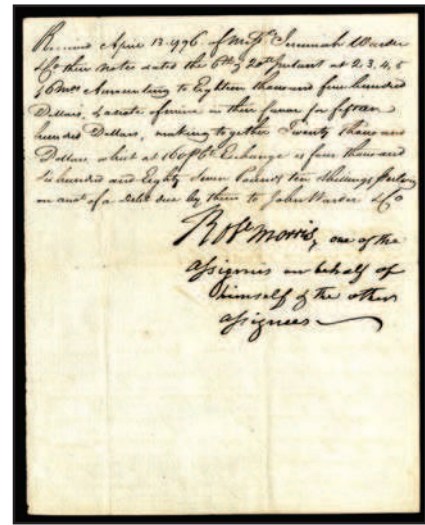 Received April 13. 1796. of Messrs Jeremiah Warder
& Co their Notes dated the 6th & 20th Instant at 2. 3. 4. 5
& 6 Mos Amounting to Eighteen thousand five hundred
Dollars, & a note of mine in their favor for fifteen
hundred Dollars, making together Twenty thousand
Dollars which at 160 PCt Exchange is four thousand
Six hundred and Eighty Seven Pounds ten Shillings Sterling
on acct of a Debt due by them to John Warder & Co
Robt Morris, one of the
assignees on behalf of
himself & the other
assignees